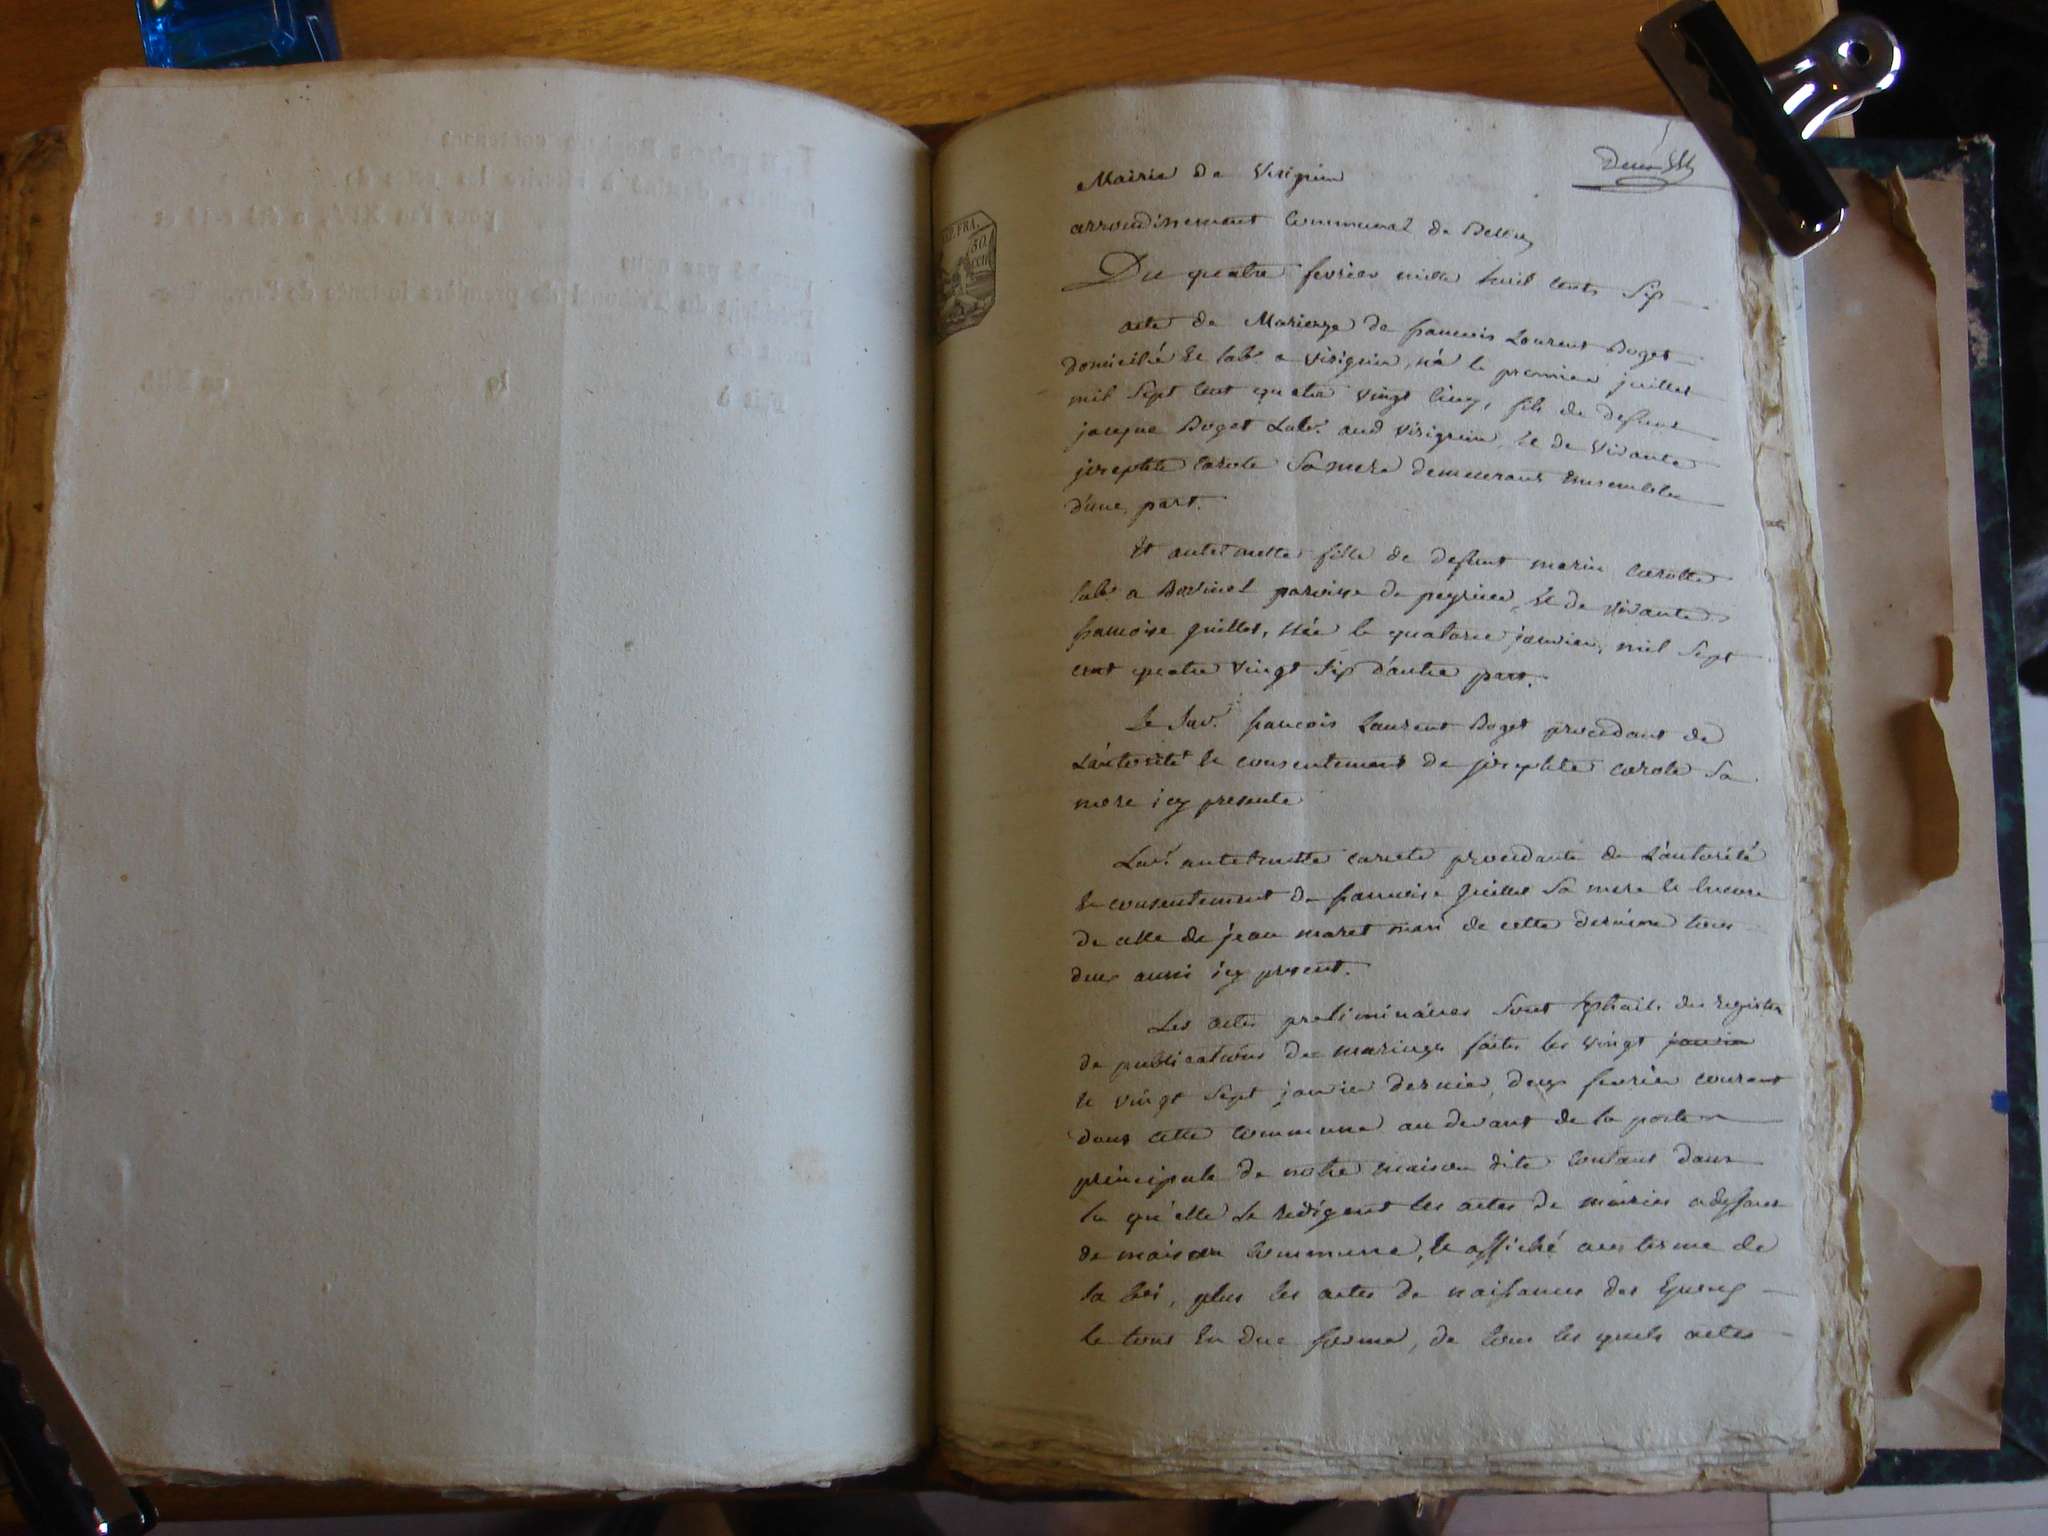 Mairie de Virignin
arrondissement Communal de Belley
Du quatre fevrier mille huit cents Six
acte de Mariage de francois Laurent Buget
domicilié et lab.r a Virignin, né le premier juillet
mil Sept cent quatre vingt cinq, fils de deffunt
jacque Buget Lab.r aud Virignin, et de vivante
josephte carote Sa mere demeurant Ensembles
d'une part.
Et antelmette fille de deffunt marin carotte
lab.r a paroisse de peyrieu, et de vivante
francoise guillet, née le quatorze janvier, mil Sept
cent quatre vingt Six d'autre part.
Le francois Laurent Buget procedant de
L'autorité et consentement de josephte carote Sa
mere icy presente
antelmette carote procedante de L'autorité
et consentement de francoise guillet Sa mere et encore
de celle de jean maret mari de cette derniere tous
deux aussi icy present.
Les actes preliminaires Sont Extrait des registre
de publications de mariage faites les vingt janvier
et vingt Sept janvier dernier, deux fevrier courant
dans cette commune au devant de la porte
principale de notre maison dite dans
la qu'elle Se redigent les actes de mairie
de maison Commune, et affiché aux terme de
la loi, plus les actes de naissance des Epoux
le tout En due forme, de tous les quels actes
FRA.
50.
cent